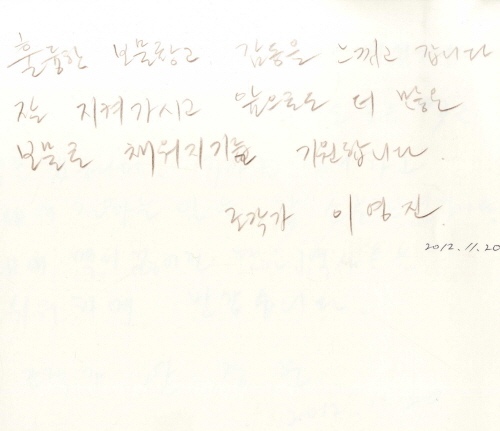 훌륭한 보물창고. 감동을 느끼고 갑니다
잘 지켜가시고 앞으로도 더 많은
보물로 채워지기를 기원합니다.
조각가 이영진.
2012. 11. 20